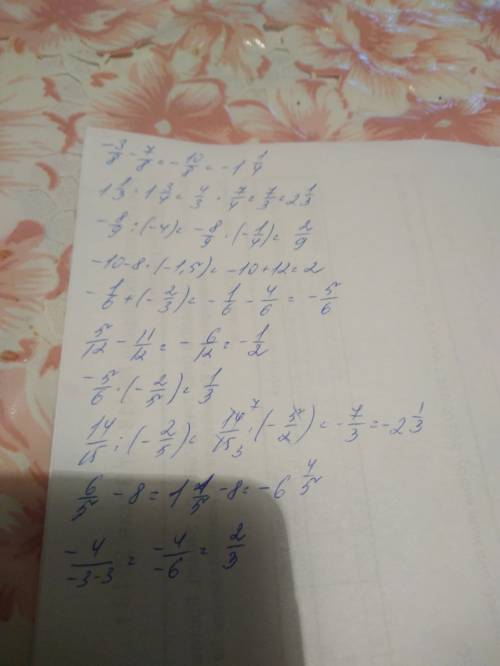 -3/8 - 7/8 = -10/8 = -1 1/4
1 1/3 · 1 3/4 = 4/3 · 7/4 = 7/3 = 2 1/3
-8/9 : (-4) = -8/9 · (-1/4) = 2/9
-10-8·(-1,5) = -10+12=2
-1/6 + (-2/3) = -1/6 - 4/6 = -5/6
5/12 - 11/12 = -6/12 = -1/2
-5/6 · (-2/5) = 1/3
14/15 : (-2/5) = 14/15 7 3 · (-5/2) = -7/3 = -2 1/3
6/5 - 8 = 1 1/5 - 8 = -6 4/5
-4/-3-3 = -4/-6 = 2/3